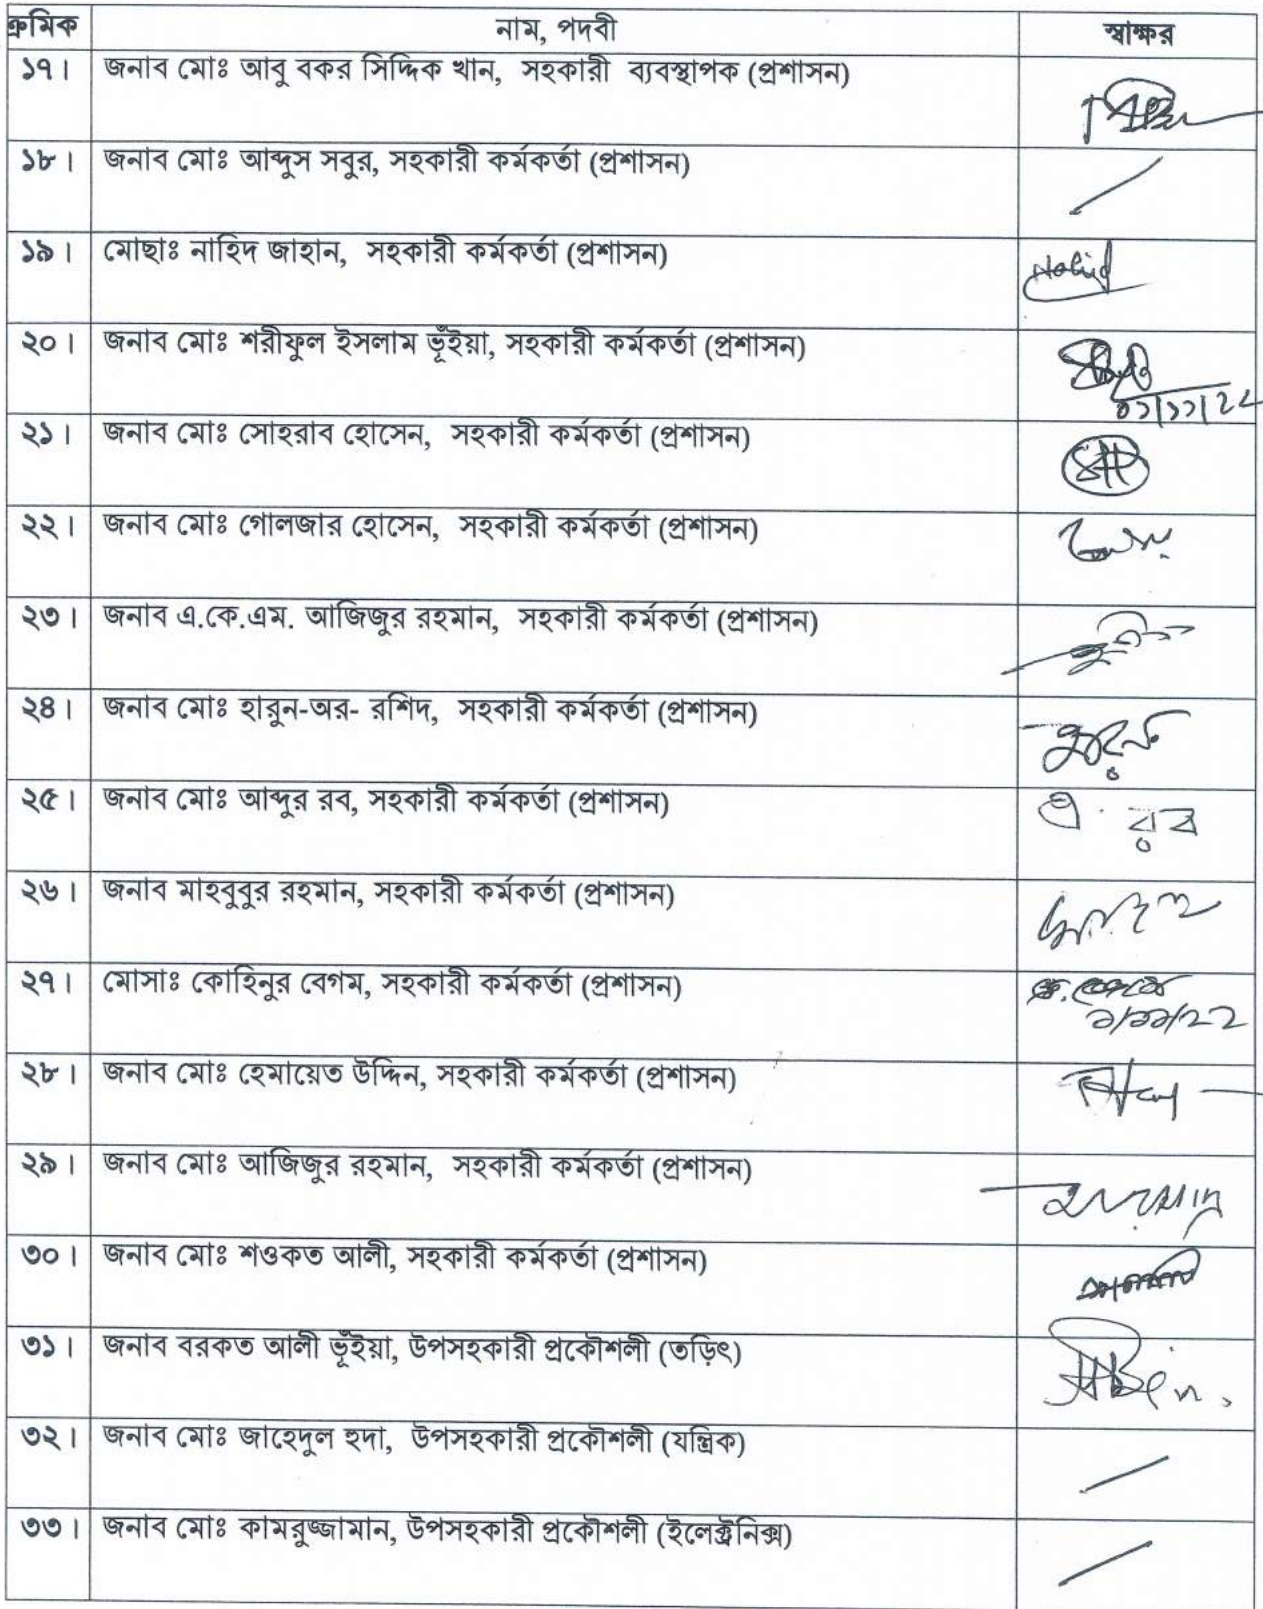 ক্রমিক নাম, পদবী স্বাক্ষর
১৭। জনাব মোঃ আবু বকর সিদ্দিক খান, সহকারী ব্যবস্থাপক (প্রশাসন)
১৮। জনাব মোঃ আব্দুস সবুর, সহকারী কর্মকর্তা (প্রশাসন)
১৯। মোছাঃ নাহিদ জাহান, সহকারী কর্মকর্তা (প্রশাসন) Nahid
২০। জনাব মোঃ শরীফুল ইসলাম ভূঁইয়া, সহকারী কর্মকর্তা (প্রশাসন)
২১। জনাব মোঃ সোহরাব হোসেন, সহকারী কর্মকর্তা (প্রশাসন)
২২। জনাব মোঃ গোলজার হোসেন, সহকারী কর্মকর্তা (প্রশাসন)
২৩। জনাব এ.কে.এম. আজিজুর রহমান, সহকারী কর্মকর্তা (প্রশাসন)
২৪। জনাব মোঃ হারুন-অর- রশিদ, সহকারী কর্মকর্তা (প্রশাসন)
২৫। জনাব মোঃ আব্দুর রব, সহকারী কর্মকর্তা (প্রশাসন) এ. রব
২৬। জনাব মাহবুবুর রহমান, সহকারী কর্মকর্তা (প্রশাসন)
২৭। মোসাঃ কোহিনুর বেগম, সহকারী কর্মকর্তা (প্রশাসন)
১/১১/২২
২৮। জনাব মোঃ হেমায়েত উদ্দিন, সহকারী কর্মকর্তা (প্রশাসন)
২৯। জনাব মোঃ আজিজুর রহমান, সহকারী কর্মকর্তা (প্রশাসন)
৩০। জনাব মোঃ শওকত আলী, সহকারী কর্মকর্তা (প্রশাসন)
৩১। জনাব বরকত আলী ভূঁইয়া, উপসহকারী প্রকৌশলী (তড়িৎ)
৩২। জনাব মোঃ জাহেদুল হুদা, উপসহকারী প্রকৌশলী (যন্ত্রিক)
৩৩। জনাব মোঃ কামরুজ্জামান, উপসহকারী প্রকৌশলী (ইলেক্ট্রনিক্স)